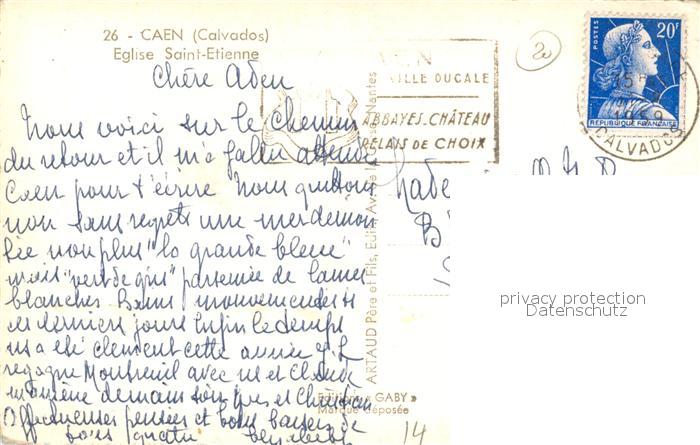 26 - CAEN (Calvados)
Eglise Saint-Etienne
Chère Aden
Nous voici sur le chemin
du retour et il m'a fallu attendre
Caen pour t'écrire Nous quittons
non sans regrets une mer démon
tée non plus "la grande bleue"
mais "vert de gris" parsemée de lames
blanches Bains mouvementés
ces derniers jours Enfin le temps
ns a été clément cette année
regagne Montreuil avec ns et Claude
emmène demain son père et Christian
Affectueuses pensées et bons baisers de
tous quatre
VILLE DUCALE
ABBAYES-CHÂTEAU
RELAIS DE CHOIX
POSTES
20F
REPUBLIQUE FRANÇAISE
1959
CALVADOS
20
ARTAUD Père et Fils, Edit., Av. de la Nantes
Editions « GABY »
Marque déposée
14
privacy protection
Datenschutz